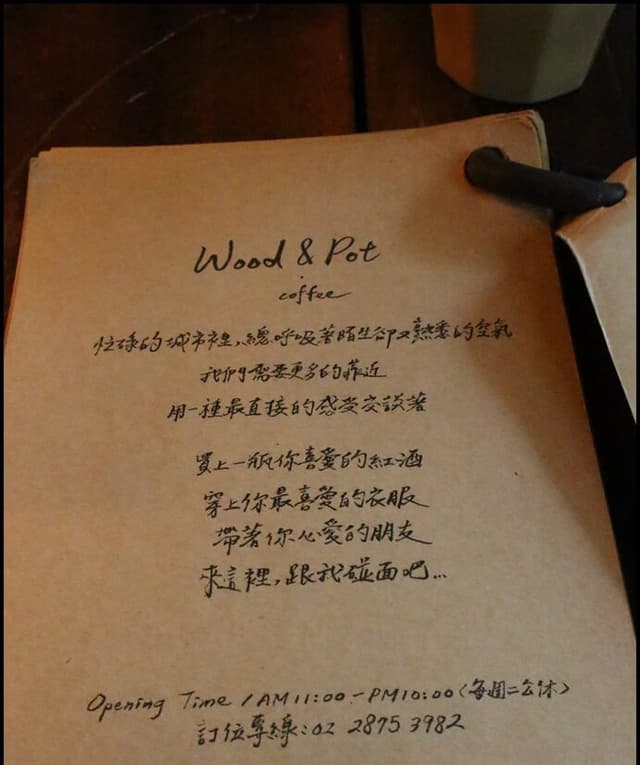 Wood & Pot
coffee
忙碌的城市裡,總呼吸著陌生卻又熟悉的空氣
我們需要更多的靠近
用一種最直接的感受交談著
買上一瓶你喜愛的紅酒
穿上你最喜愛的衣服
帶著你心愛的朋友
來這裡,跟我碰面吧...
Opening Time / AM11:00 - PM10:00 (每週二公休)
訂位專線:02 2875 3982